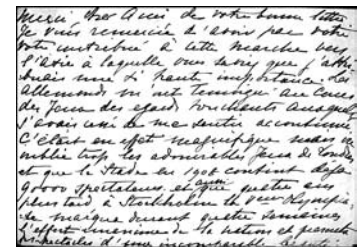 Merci cher Ami de votre bonne lettre
Je vous remercie d'avoir par votre
contribué à cette marche vers
l'asie à laquelle vous savez que j'attri
buais une si haute importance. Les
allemands m'ont temoigné au cours
des Jeux des egards touchants auxquels
j'avais cessé de me sentir accoutumé
C'était en effet magnifique mais on
oublie trop les admirables Jeux de Londres
et que le Stade en 1908 contint déjà
90000 spectateurs et que quatre ans
plus tard à Stockholm la Veme Olympiade
se marqua durant quatre semaines
l'effort unanime de la nation et permit
spectacles d'une incomparable